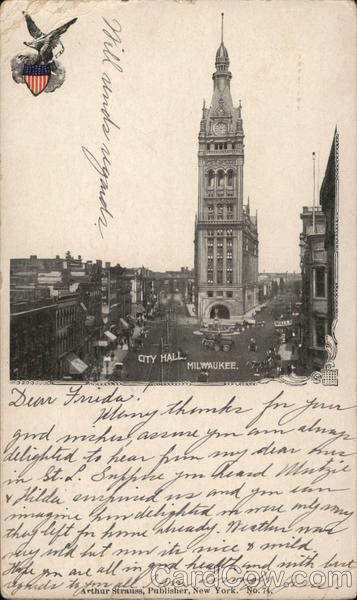 Will sends regards.
CITY HALL
MILWAUKEE.
Dear Frieda.
Many thanks for your
good wishes, assure you am always
delighted to hear from my dear ones
in St. L. Suppose you heard
& Hilda surprised us and you can
imagine how delighted we were only sorry
they left for home already. Weather was
very cold but now its nice & mild.
Hope you are all in good health and with best
regards to you all
Arthur Strauss, Publisher, New York. No. 74.
CardCow.com